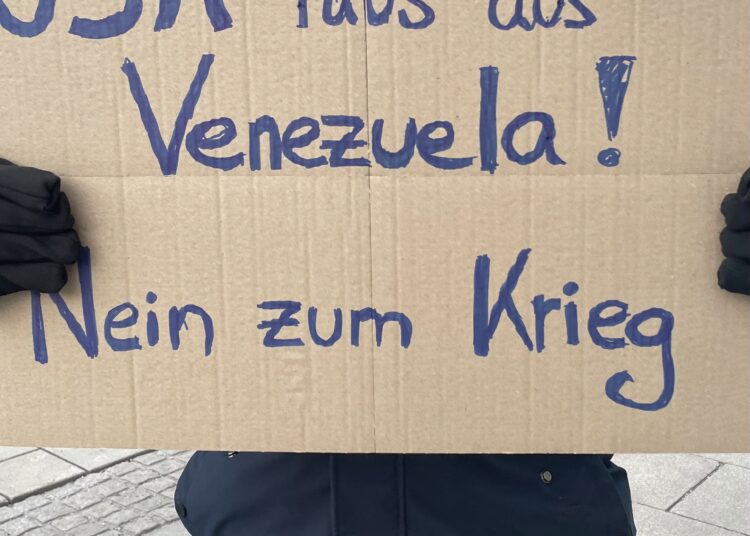 USA raus aus
Venezuela!
Nein zum Krieg